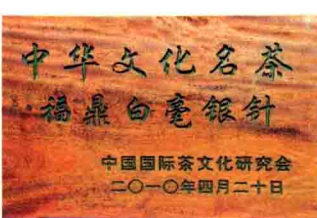 中华文化名茶
·福鼎白毫银针
中国国际茶文化研究会
二〇一〇年四月二十日